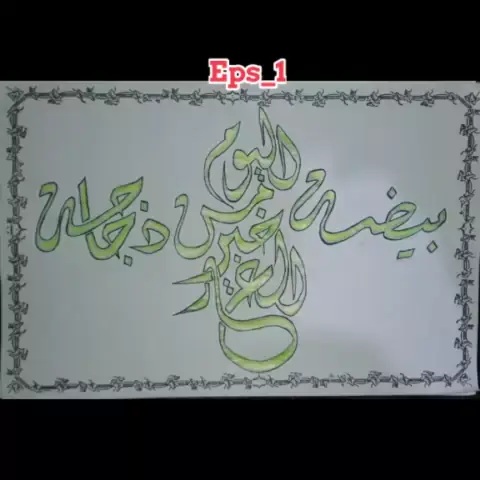 Eps_1
بيضة اليوم خير من دجاجة الغد